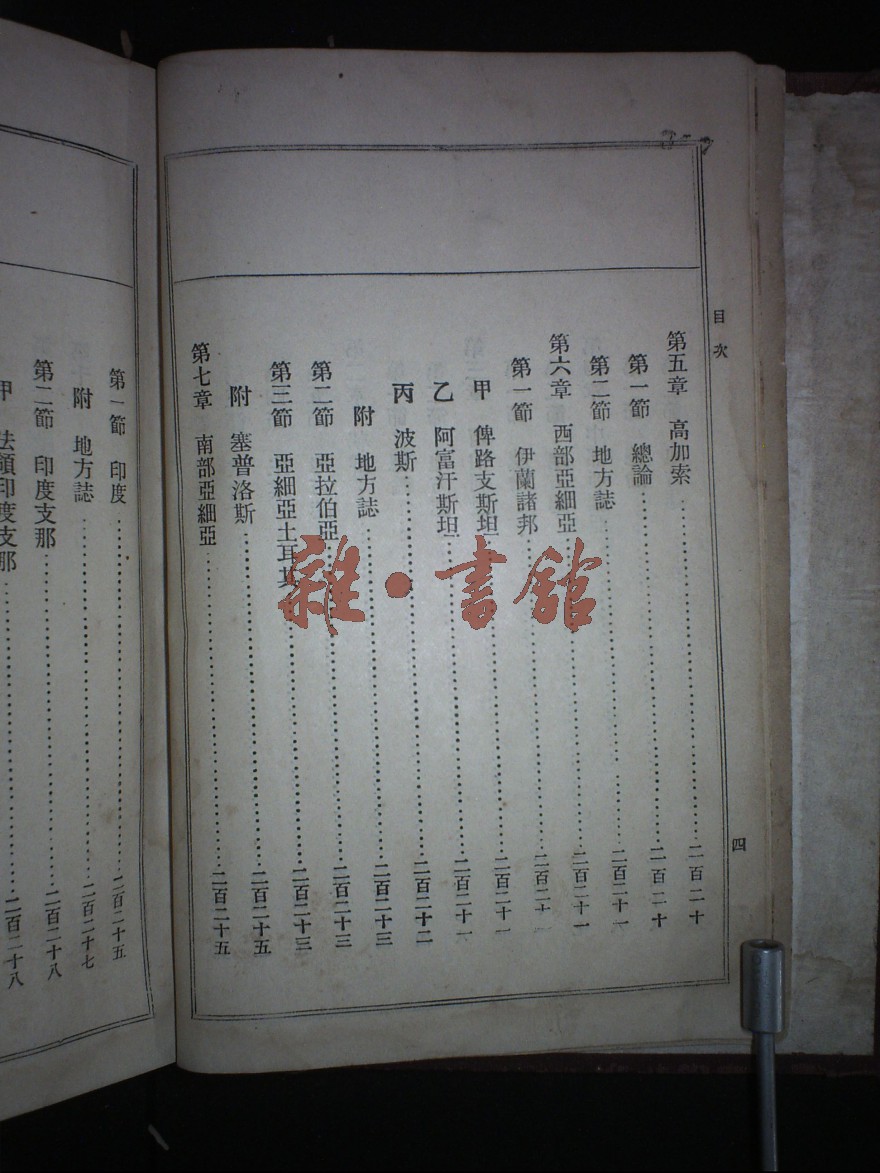 目次
第五章 高加索 二百二十
第一節 總論 二百二十
第二節 地方誌 二百二十一
第六章 西部亞細亞 二百二十一
第一節 伊蘭諸邦 二百二十一
甲 俾路支斯坦 二百二十一
乙 阿富汗斯坦 二百二十一
丙 波斯 二百二十二
附 地方誌 二百二十三
第二節 亞拉伯亞 二百二十三
第三節 亞細亞土耳其 二百二十三
附 塞普洛斯 二百二十五
第七章 南部亞細亞 二百二十五
四
第一節 印度 二百二十五
附 地方誌 二百二十七
第二節 印度支那 二百二十八
甲 法領印度支那 二百二十八
雜·書館